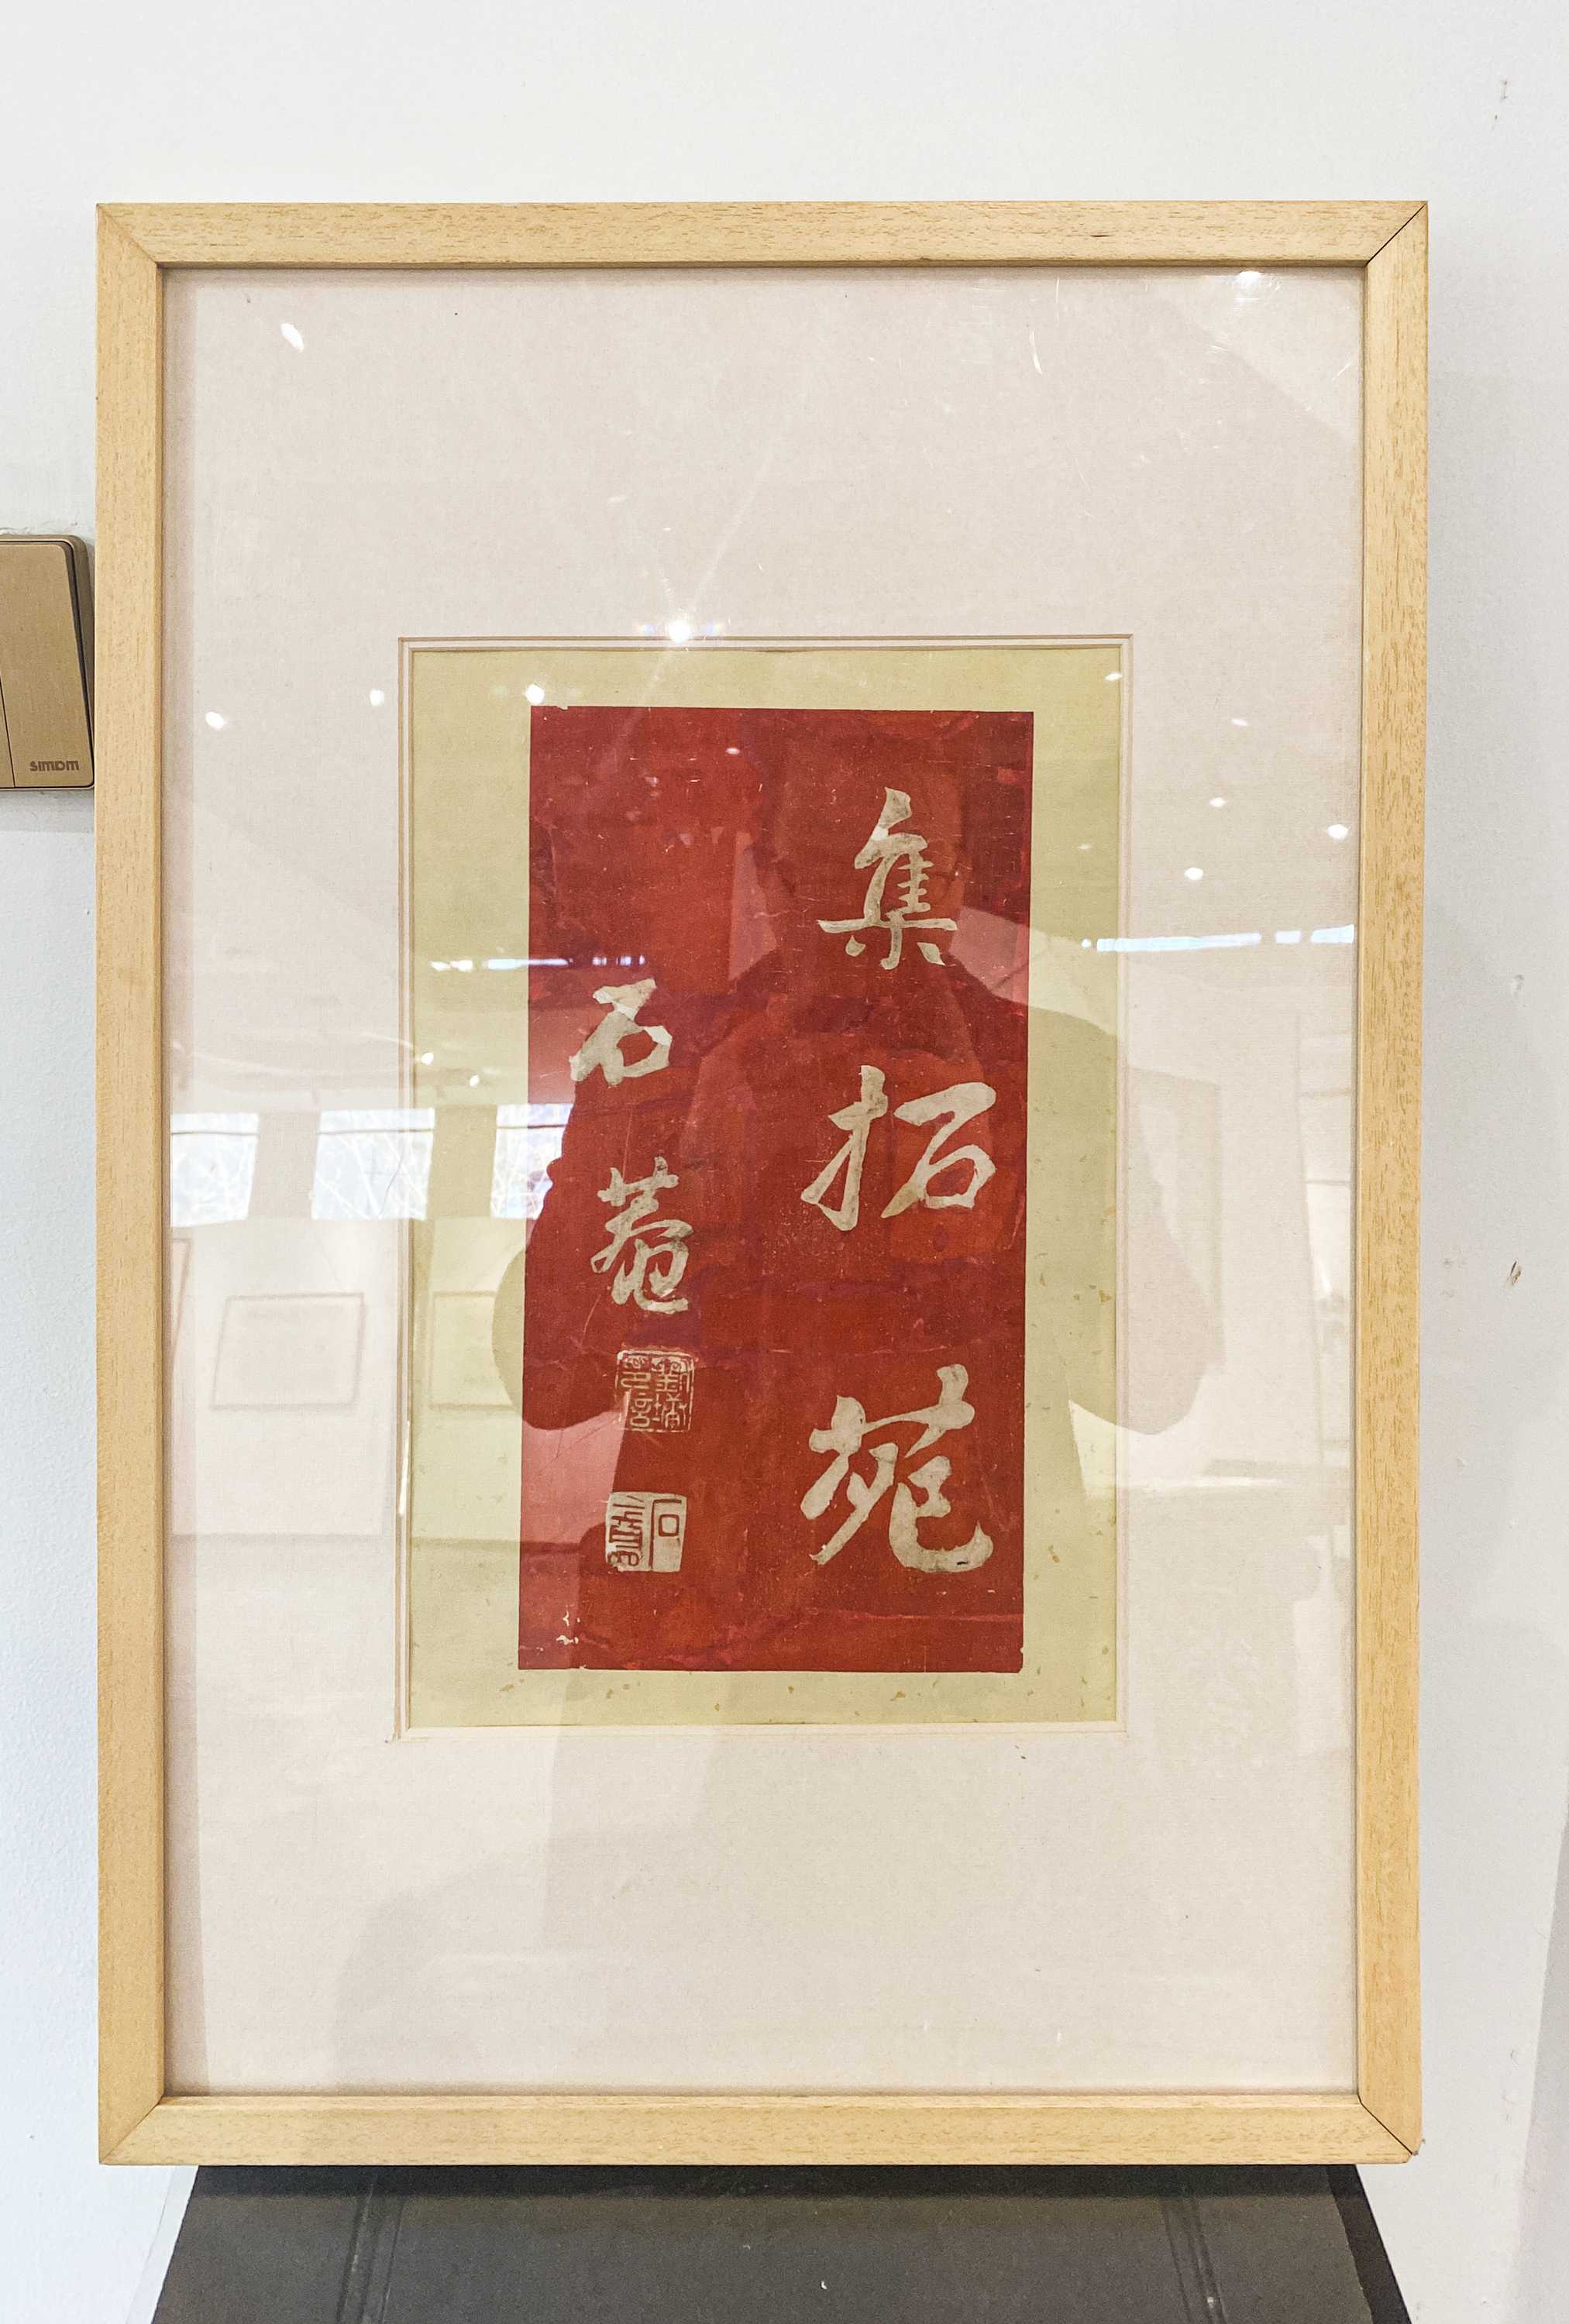 集拓苑
石菴
SIMON